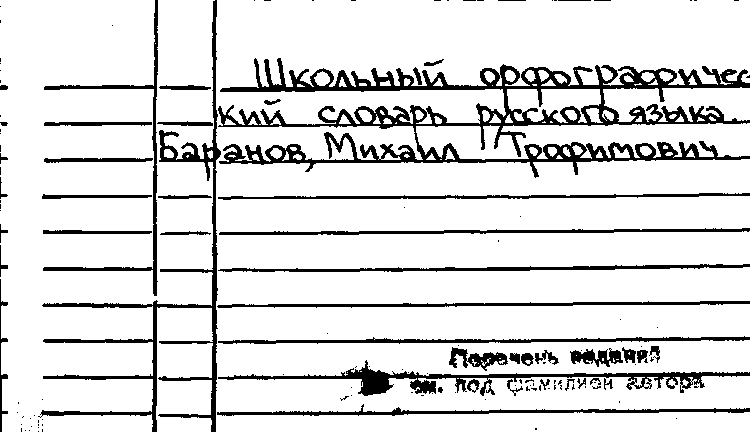 Школьный орфографичес
кий словарь русского языка.
Баранов, Михаил Трофимович.
Перечень изданий
см. под фамилией автора